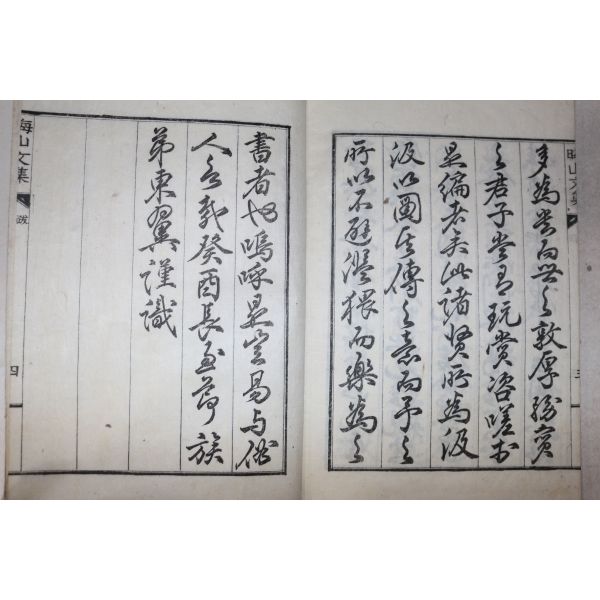 多為貴而世之敦厚務實
之君子當有玩賞咨嗟於
是編者矣此諸賢所為汲
汲以圖其傳之意而予之
所以不避濫猥而樂為之
書者也嗚呼是豈易与俗
人言哉癸酉長至節族
弟東翼謹識
晦山文集
三
晦山文集
跋
四